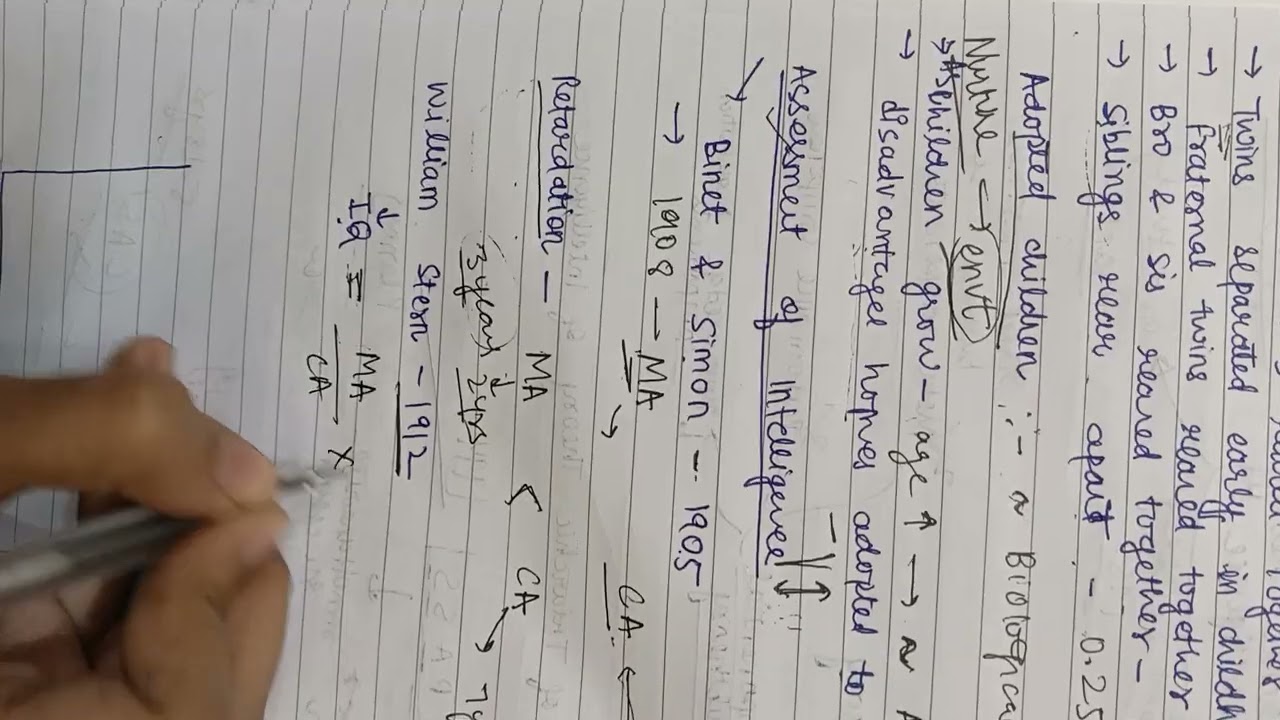 → Twins separated early in childh
→ fratenal twins reared together
→ Bro & sis reared together -
→ Siblings rear apart - 0.25
Adopted children :- ~ Biologica
Nurture → envt
children grow - age ↑ → ~
→ disadvantaged homes adopted to
Assessment of Intelligence
Binet & Simon - 1905
→ 1908 - MA → CA ←
Retardation - MA < CA
3 years 2 yrs
William Stern - 1912
IQ = MA / CA ×